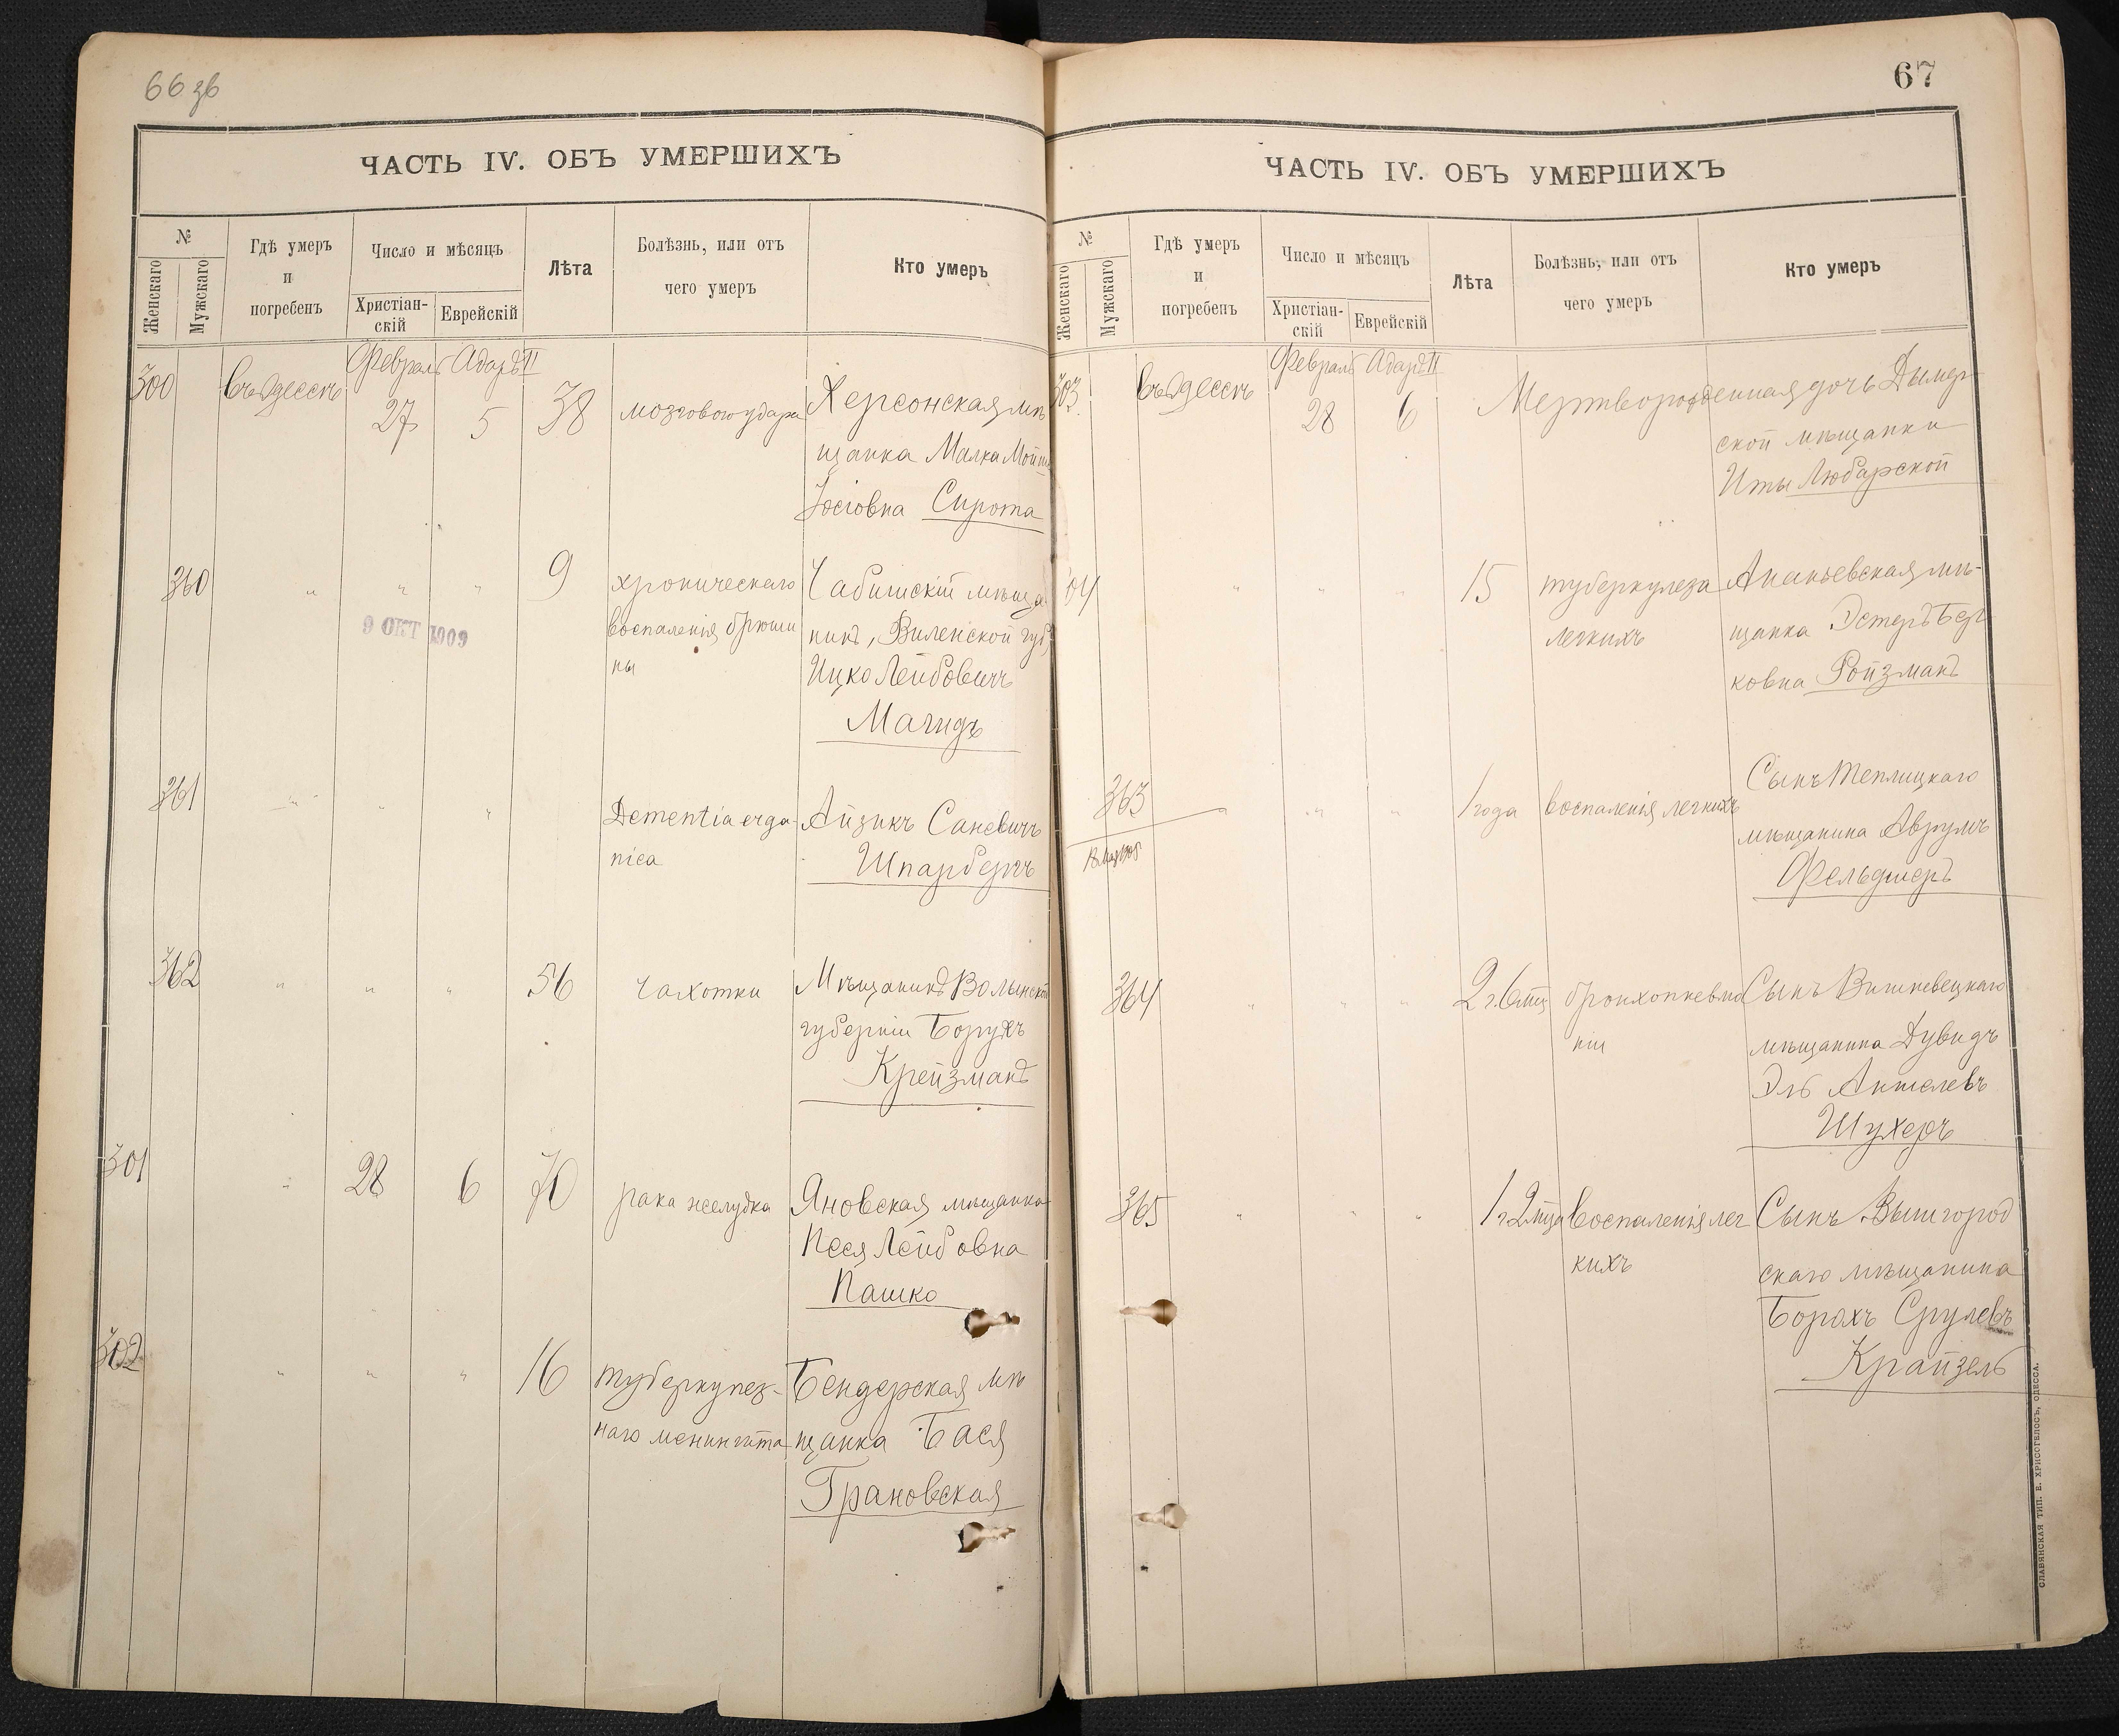 66 зв
ЧАСТЬ IV. ОБЪ УМЕРШИХЪ
№
Женскаго
Мужскаго
Гдѣ умеръ
и
погребенъ
Число и мѣсяцъ
Христіан-
скій
Еврейскій
Лѣта
Болѣзнь, или отъ
чего умеръ
Кто умеръ
Февраль Адаръ II
300 Въ Одессѣ 27 5 38 мозгового удара Херсонская мѣ
щанка Малка Мойше
Іосіовна Сирота
360 " " " 9 хроническаго
воспаленія брюши
ны
9 ОКТ 1909
мѣща
нинъ, Виленской губ,
Ицко Лейбовичъ
Магидъ
361 " " " Dementia orga-
nica
Айзикъ Саневичъ
Шпарберъ
362 " " " 56 чахотки Мѣщанинъ Волынской
губерніи Борухъ
Крейзманъ
301 " 28 6 70 рака желудка Яновская мѣщанка
Песя Лейбовна
Пашко
302 " " " 16 туберкулез-
наго менингита
Бендерская мѣ
щанка Бася
Грановская
67
ЧАСТЬ IV. ОБЪ УМЕРШИХЪ
№
Женскаго
Мужскаго
Гдѣ умеръ
и
погребенъ
Число и мѣсяцъ
Христіан-
скій
Еврейскій
Лѣта
Болѣзнь, или отъ
чего умеръ
Кто умеръ
Февраль Адаръ II
303 Въ Одессѣ 28 6 Мертворожденная дочь Дымер-
ской мѣщанки
Иты Любарской
304 " " " 15 туберкулеза
легкихъ
Ананьевская мѣ-
щанка Эстеръ Бер
ковна Ройзманъ
363 " " " 1 года воспаленія легкихъ
Сынъ Теплицкаго
мѣщанина Аврумъ
Фельдшеръ
364 " " " 2 г. 6 мц бронхопневмо
ніи
Сынъ Вишневецкаго
мѣщанина Дувидъ
Эль Аншелевъ
Шухеръ
365 " " " 1 г 2 мца воспаленія лег
кихъ
Сынъ Вышгород
скаго мѣщанина
Борохъ Срулевъ
Крайзель
СЛАВЯНСКАЯ ТИП. Е. ХРИСОГЕЛОСЪ, ОДЕССА.